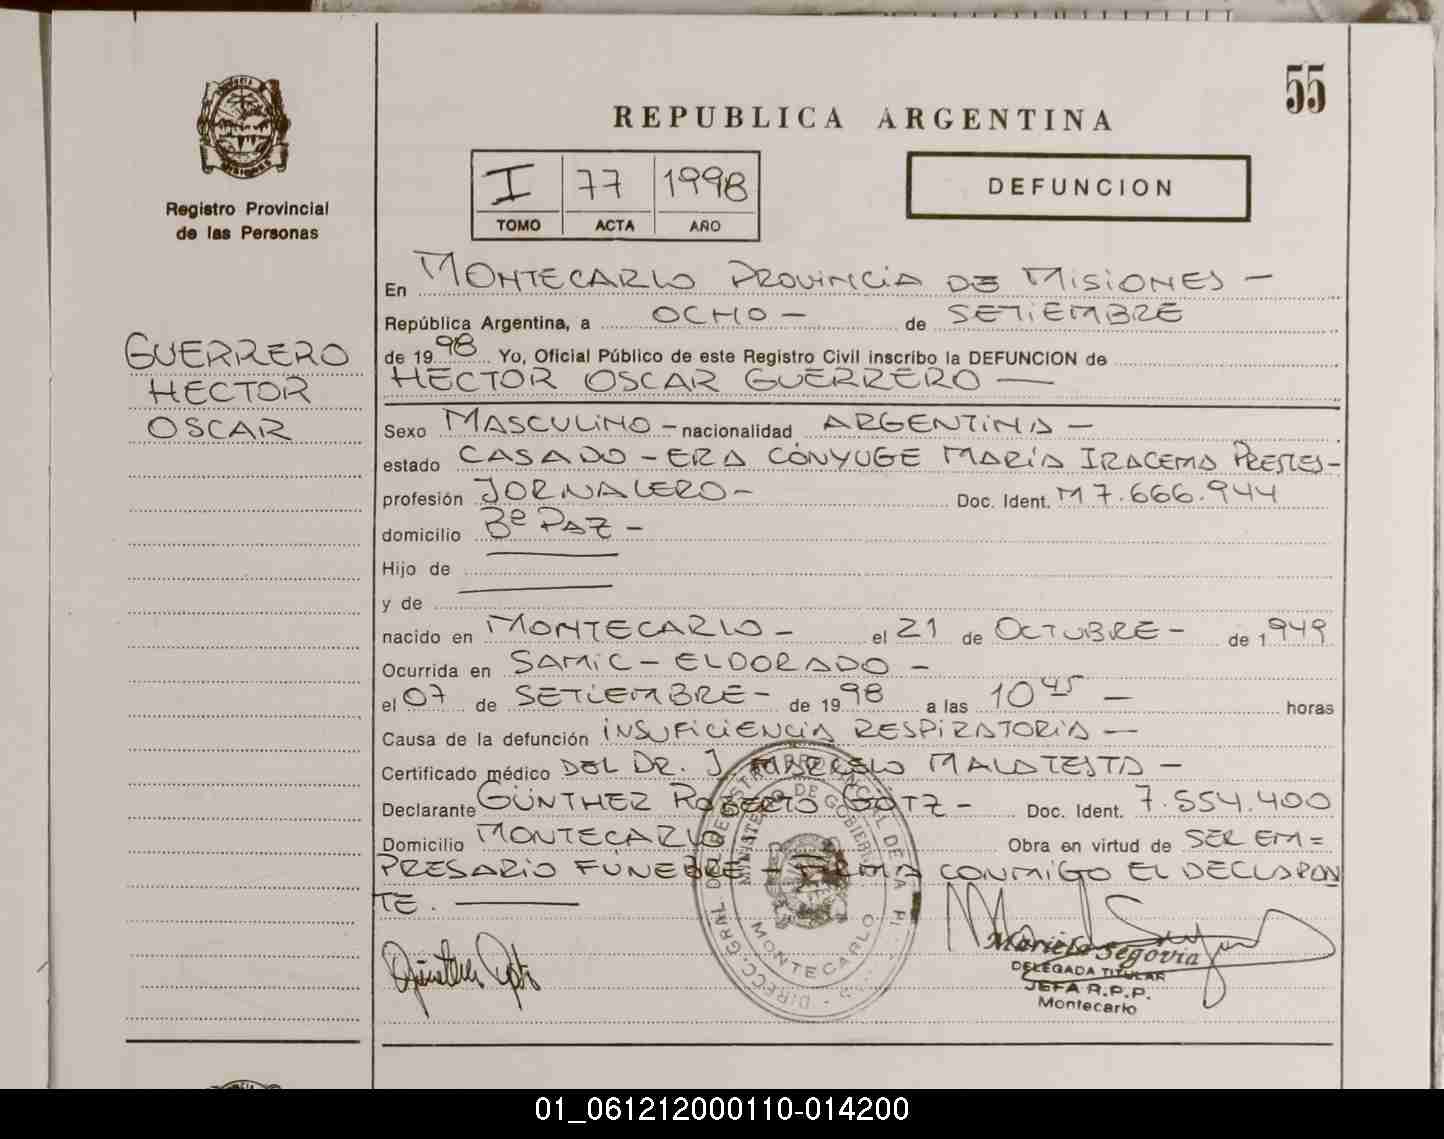 55
REPUBLICA ARGENTINA
Registro Provincial
de las Personas
I 77 1998
TOMO ACTA AÑO
DEFUNCION
GUERRERO
HECTOR
OSCAR
En MONTECARLO PROVINCIA DE MISIONES -
República Argentina, a OCHO - de SETIEMBRE
de 1998 Yo, Oficial Público de este Registro Civil inscribo la DEFUNCION de
HECTOR OSCAR GUERRERO —
Sexo MASCULINO - nacionalidad ARGENTINA -
estado CASADO - ERA CÓNYUGE MARÍA IRACEMA PRESTES -
profesión JORNALERO - Doc. Ident. M 7.666.944
domicilio Bº PAZ -
Hijo de
y de
nacido en MONTECARLO - el 21 de OCTUBRE - de 1949
Ocurrida en SAMIC - ELDORADO -
el 07 de SETIEMBRE - de 1998 a las 10 45 — horas
Causa de la defunción INSUFICIENCIA RESPIRATORIA —
Certificado médico DEL DR. J. MARCELO MALATESTA -
Declarante GÜNTHER ROBERTO GOTZ - Doc. Ident. 7.554.400
Domicilio MONTECARLO Obra en virtud de SER EM=
PRESARIO FUNEBRE - FIRMA CONMIGO EL DECLARAN
TE. —
MINISTERIO DE GOBIERNO
MONTECARLO
Mariela Segovia
DELEGADA TITULAR
JEFA R.P.P.
Montecarlo
01_061212000110-014200